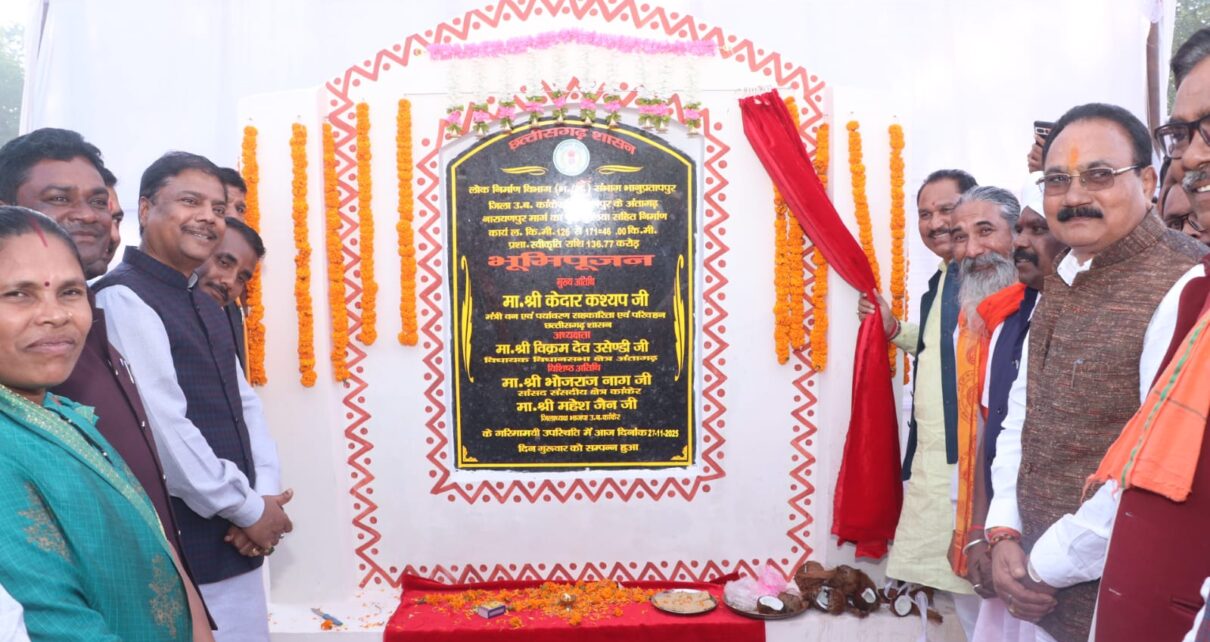 छत्तीसगढ़ शासन
लोक निर्माण विभाग (भ./स.) संभाग भानुप्रतापपुर
जिला उ.ब. कांकेर के अंतागढ़
नारायणपुर मार्ग का सहित निर्माण
कार्य ल. कि.मी. 126 से 171=46 .00 कि.मी.
प्रशा.स्वीकृति राशि 136.77 करोड़
भूमिपूजन
मुख्य अतिथि
मा.श्री केदार कश्यप जी
मंत्री वन एवं पर्यावरण सहकारिता एवं परिवहन
छत्तीसगढ़ शासन
अध्यक्षता
मा.श्री विक्रम देव उसेण्डी जी
विधायक विधानसभा क्षेत्र अंतागढ़
विशिष्ठ अतिथि
मा.श्री भोजराज नाग जी
सांसद संसदीय क्षेत्र कांकेर
मा.श्री महेश जैन जी
जिलाध्यक्ष भाजपा उ.ब.कांकेर
के गरिमामयी उपस्थिति में आज दिनाँक 27-11-2025
दिन गुरूवार को सम्पन्न हुआ